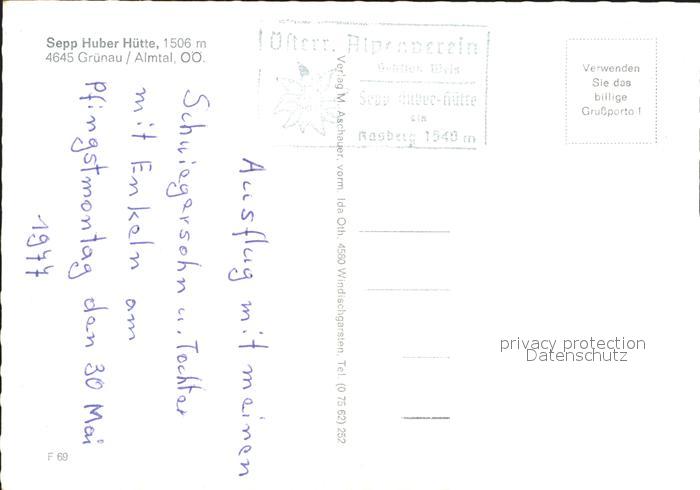 Sepp Huber Hütte, 1506 m
4645 Grünau / Almtal, OÖ.
Österr. Alpenverein
Sektion Wels
Sepp Huber-Hütte
Kasberg 1540 m
Verwenden
Sie das
billige
Grußporto !
Ausflug mit meinen
Schwiegersohn u. Tochter
mit Enkeln am
Pfingstmontag den 30 Mai
1977
Verlag M. Aschauer, vorm. Ida Oth, 4580 Windischgarsten, Tel. (0 75 62) 252
privacy protection
Datenschutz
F 69